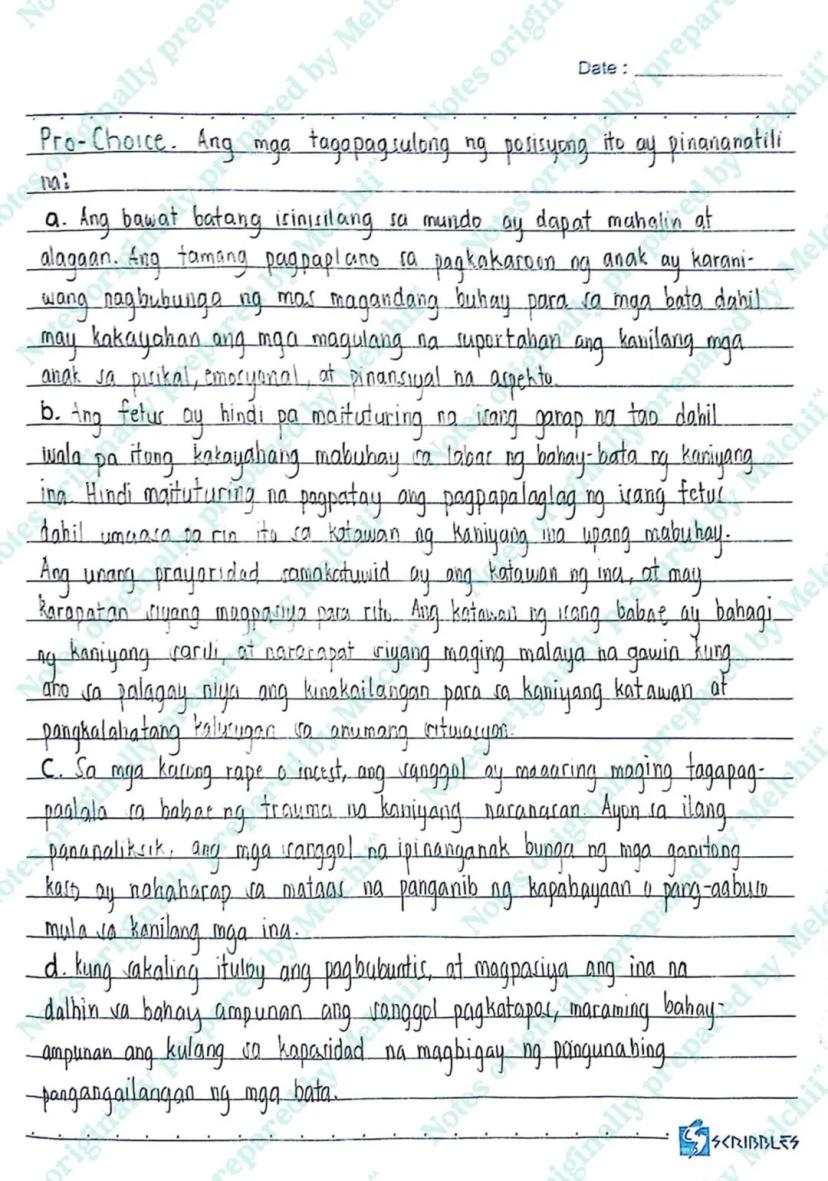 Date :
Pro-Choice. Ang mga tagapagsulong ng posisyong ito ay pinananatili
na:
a. Ang bawat batang isinisilang sa mundo ay dapat mahalin at
alagaan. Ang tamang pagpaplano sa pagkakaroon ng anak ay karani-
wang nagbubunga ng mas magandang buhay para sa mga bata dahil
may kakayahan ang mga magulang na suportahan ang kanilang mga
anak sa pisikal, emosyonal, at pinansiyal na aspekto.
b. Ang fetus ay hindi pa maituturing na isang ganap na tao dahil
wala pa itong kakayahang mabuhay sa labas ng bahay-bata ng kaniyang
ina. Hindi maituturing na pagpatay ang pagpapalaglag ng isang fetus
dahil umaasa pa rin ito sa katawan ng kaniyang ina upang mabuhay.
Ang unang prayoridad samakatuwid ay ang katawan ng ina, at may
karapatan siyang magpasiya para rito. Ang katawan ng isang babae ay bahagi
ng kaniyang sarili, at nararapat siyang maging malaya na gawin kung
ano sa palagay niya ang kinakailangan para sa kaniyang katawan at
pangkalahatang kalusugan sa anumang sitwasyon.
c. Sa mga kasong rape o incest, ang sanggol ay maaaring maging tagapag-
paalala sa babae ng trauma na kaniyang naranasan. Ayon sa ilang
pananaliksik, ang mga sanggol na ipinanganak bunga ng mga ganitong
kaso ay nahaharap sa mataas na panganib ng kapabayaan o pang-aabuso
mula sa kanilang mga ina.
d. Kung sakaling ituloy ang pagbubuntis, at magpasiya ang ina na
dalhin sa bahay ampunan ang sanggol pagkatapos, maraming bahay-
ampunan ang kulang sa kapasidad na magbigay ng pangunahing
pangangailangan ng mga bata.
SCRIBBLES
Notes originally prepared by Melchii